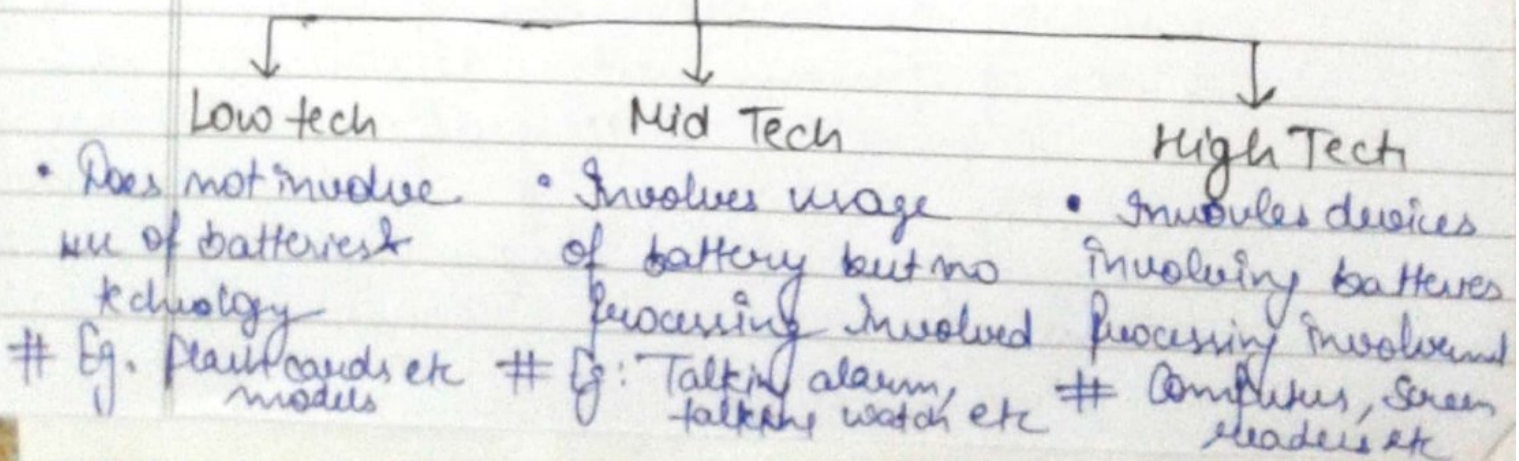 Low tech
• Does not involve
use of batteries &
technology
# Eg. flash cards etc
models
Mid Tech
• Involves usage
of battery but no
processing involved
# Eg: Talking alarm,
talking watch etc
High Tech
• Involves devices
involving batteries
Processing
# Computers, Screen
readers etc